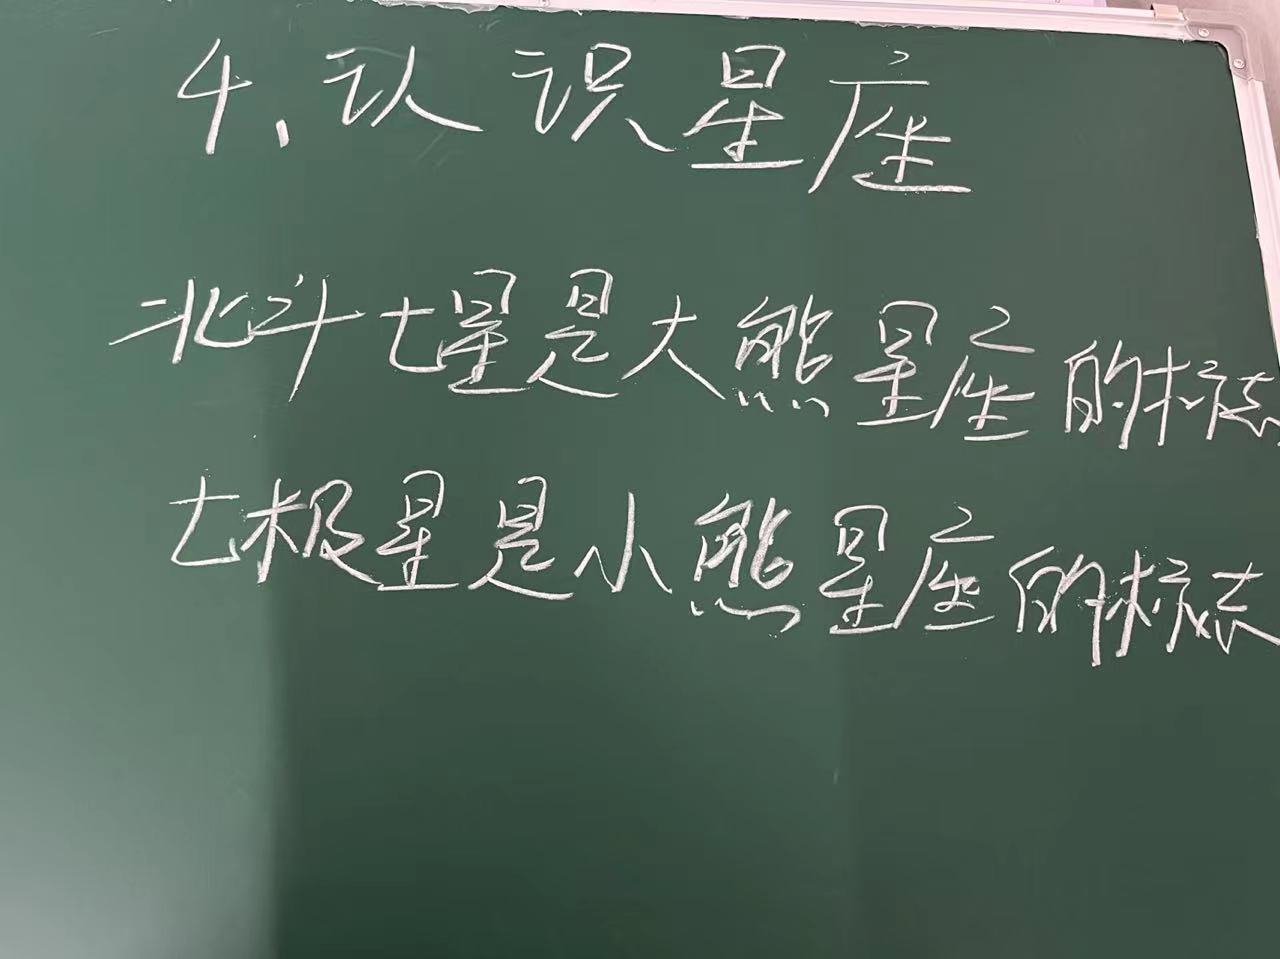 4、认识星座
北斗七星是大熊星座的标志
七极星是小熊星座的标志